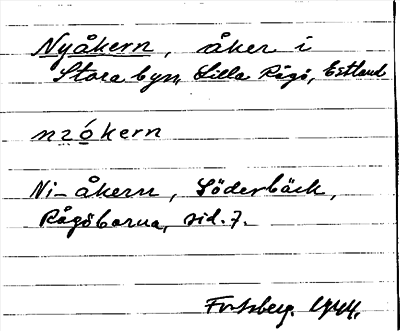 Nyåkern, åker i
Stora byn, Lilla Rågö, Estland
nzókern
Ni-åkern, Söderbäck,
Rågöborna, sid. 7.
1944.